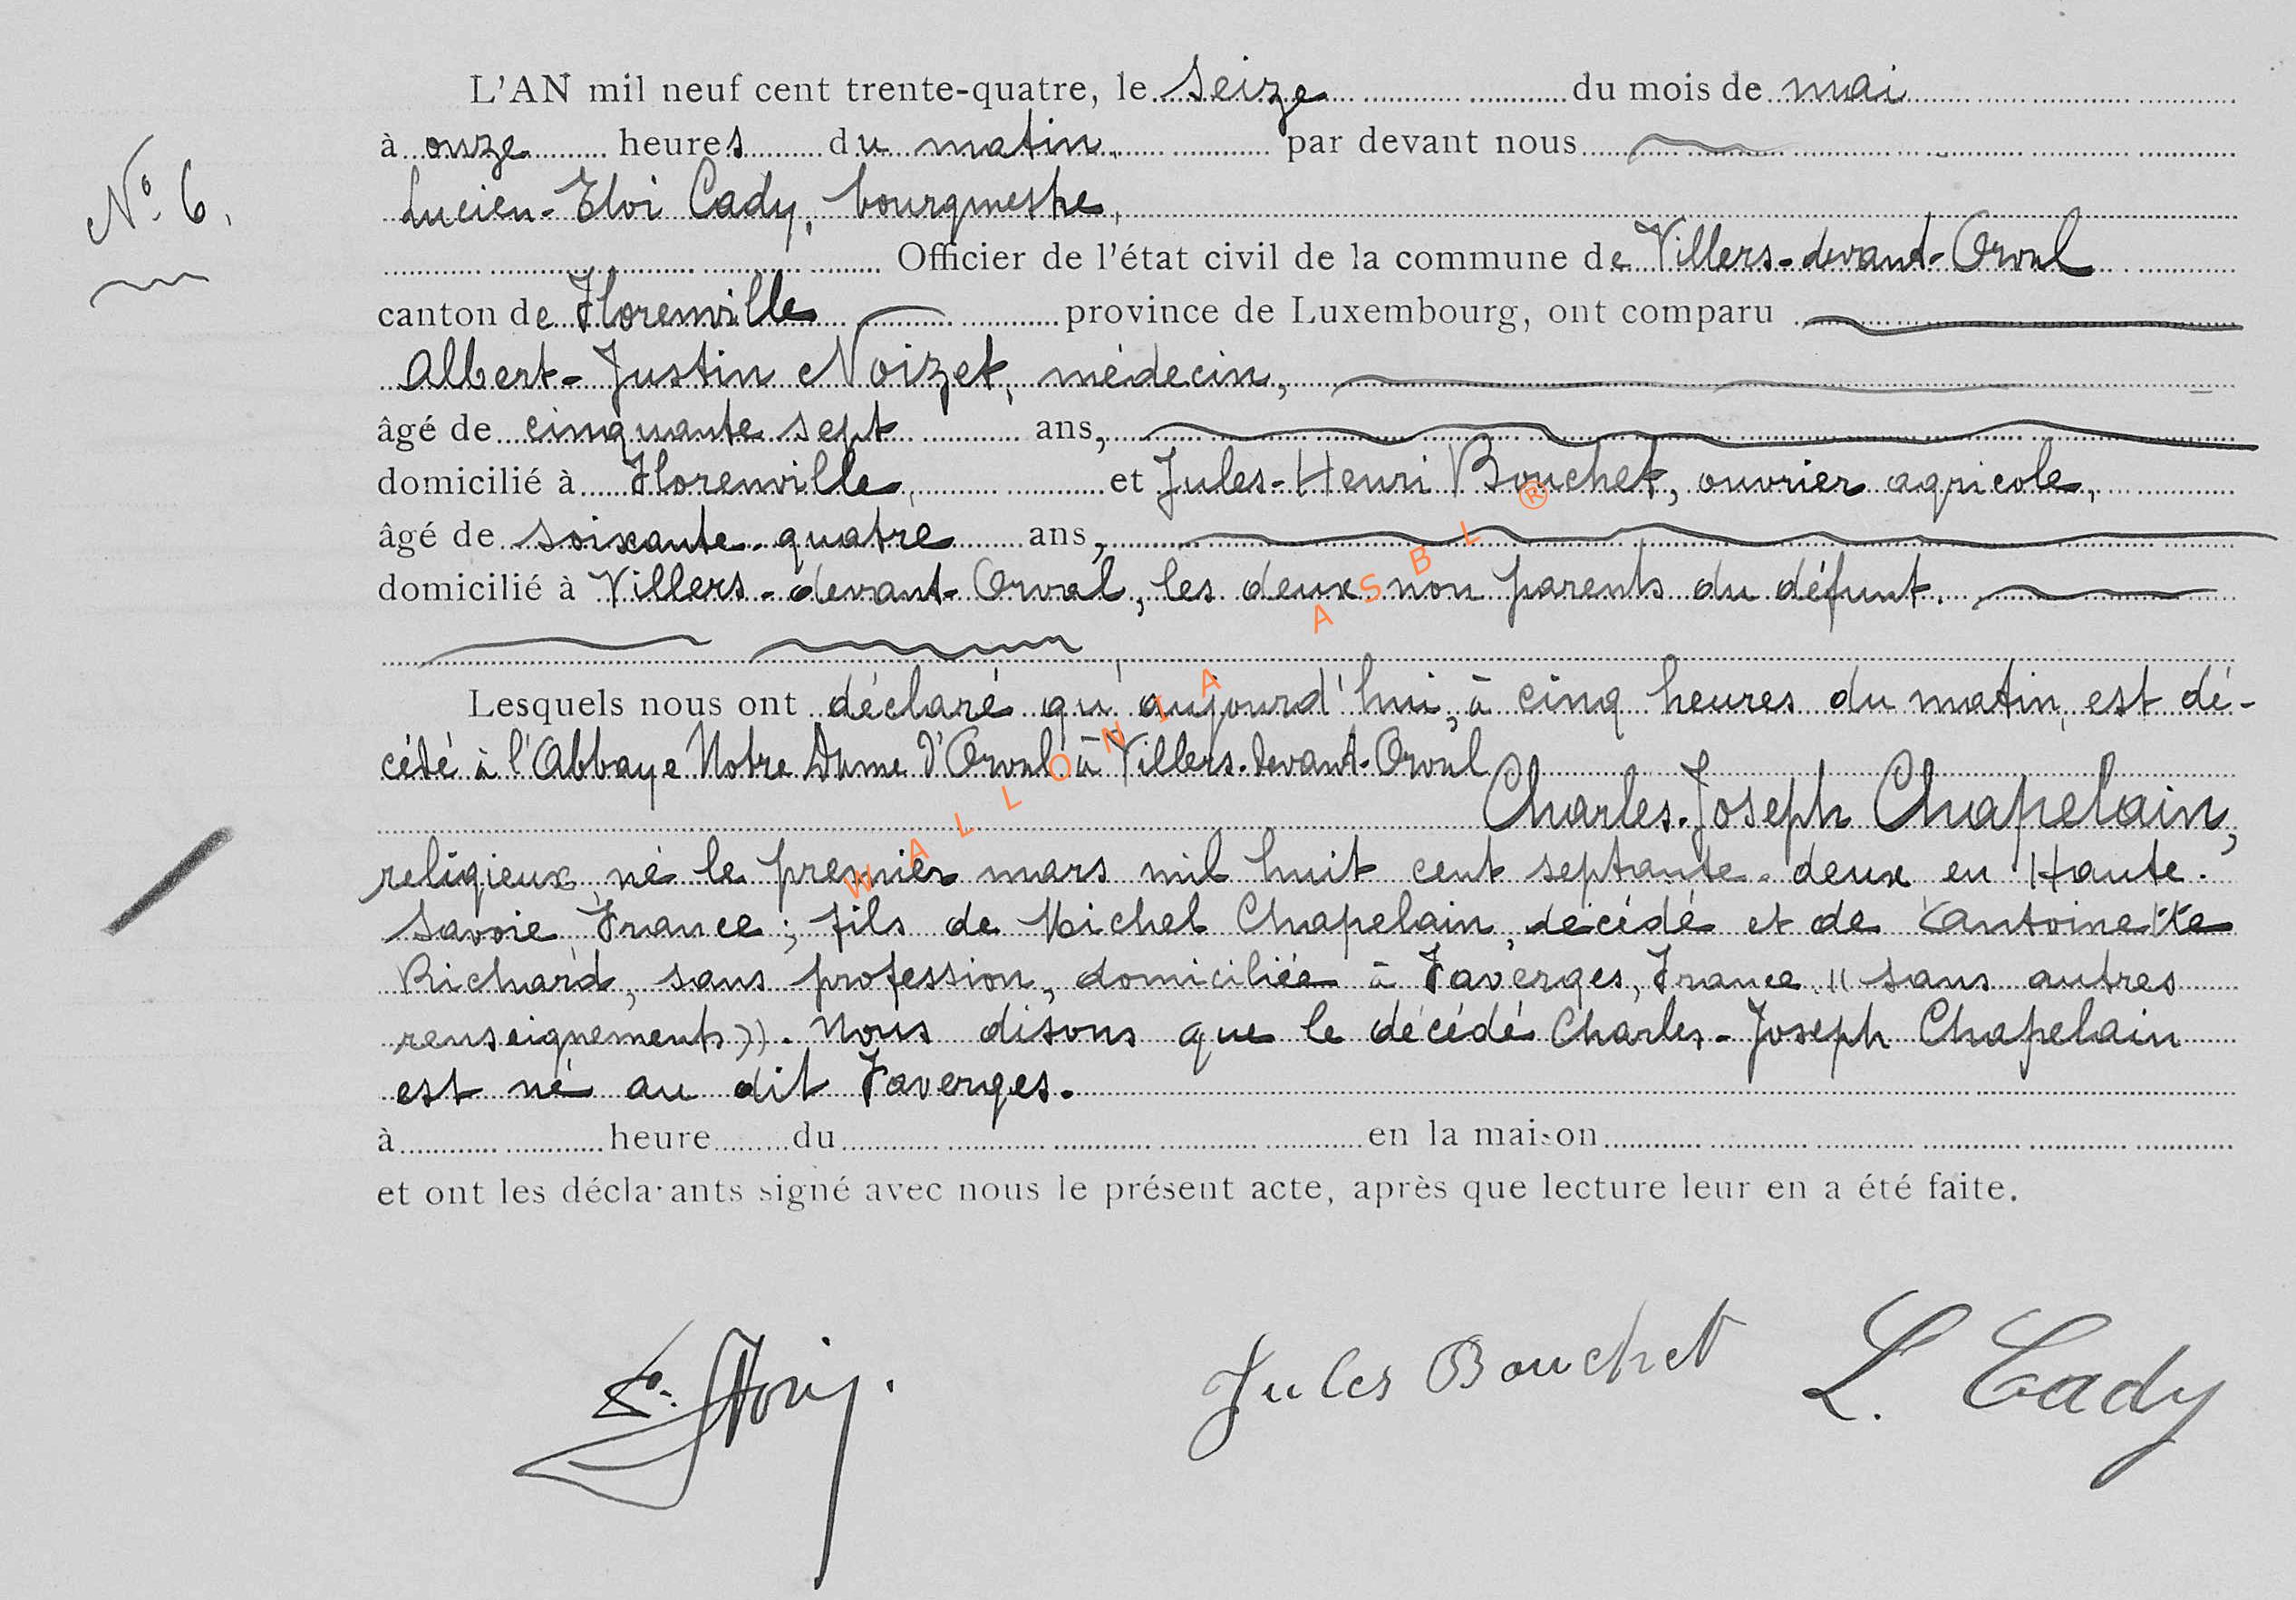 L'AN mil neuf cent trente-quatre, le seize du mois de mai
à onze heures du matin, par devant nous
N° 6.
Lucien-Eloi Cady, bourgmestre,
Officier de l'état civil de la commune de Villers-devant-Orval
canton de Florenville province de Luxembourg, ont comparu
Albert-Justin Noizet, médecin,
âgé de cinquante sept ans,
domicilié à Florenville, et Jules-Henri Bouchet, ouvrier agricole,
âgé de soixante-quatre ans,
domicilié à Villers-devant-Orval, les deux non parents du défunt.
Lesquels nous ont déclaré qu'aujourd'hui, à cinq heures du matin, est dé-
cédé à l'Abbaye Notre Dame d'Orval à Villers-devant-Orval
Charles-Joseph Chapelain,
religieux, né le premier mars mil huit cent septante-deux en Haute-
Savoie, France; fils de Michel Chapelain, décédé et de Antoinette
Richard, sans profession, domiciliée à Faverges, France ((sans autres
renseignements)). Nous disons que le décédé Charles-Joseph Chapelain
est né au dit Faverges.
à heure du en la maison
et ont les déclarants signé avec nous le présent acte, après que lecture leur en a été faite.
Jules Bouchet L. Cady
WALLONIA ASBL ®